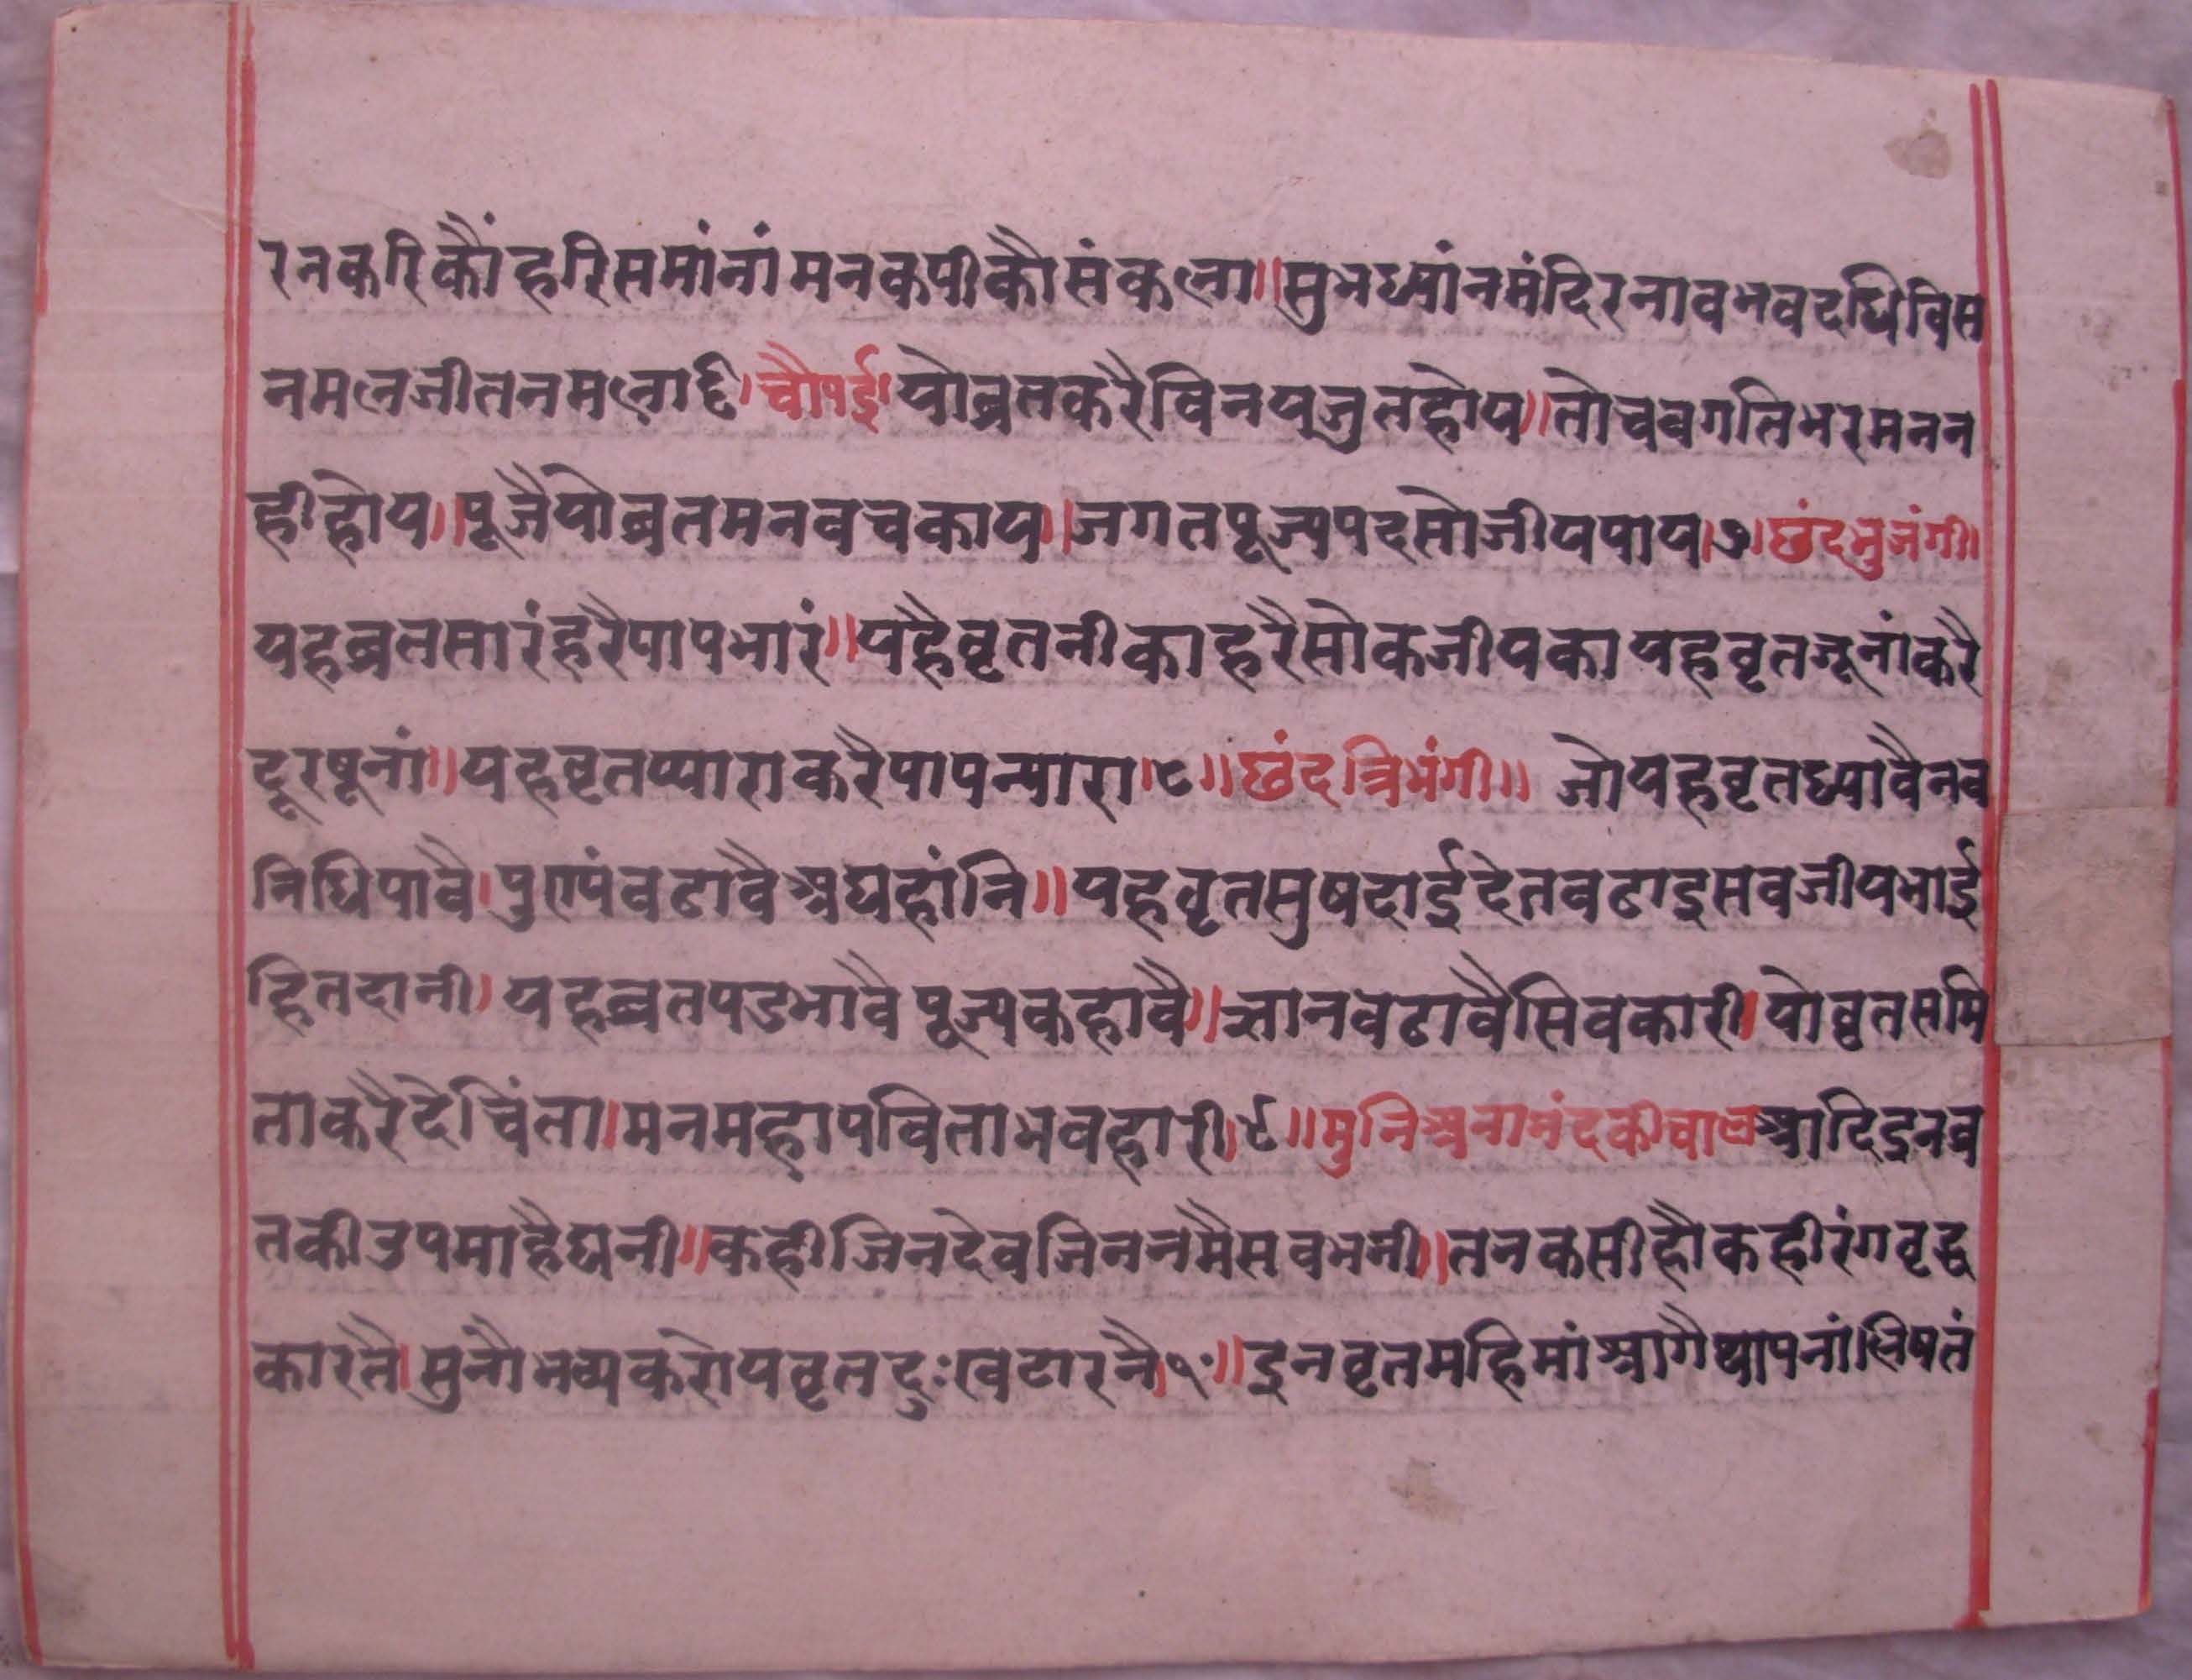 रनकरिकौंहरिसमांनांमनकपीकौसंकलना॥सुभध्यांनमंदिरनावभवदधिविस
नमलजीतनमलना६।चौपई।योब्रतकरैविनयजुतहोय॥तोचवगतिभरमनन
हीहोय॥पूजैयोब्रतमनवचकाय॥जगतपूज्यपदसोजीयपाय।७।छंदभुजंगी।
यहब्रतसारंहरैपापभारं॥यहैवृतनीकाहरैसोकजीयकायहवृतजूनांकरै
दूरषूनां॥यहवृतप्याराकरैपापन्यारा।८॥छंदत्रिभंगी॥ जोयहवृतध्यावैनव
निधिपावै।पुण्यंवढावैअघहांनि॥यहवृतसुषदाईदेतवढाइसवजीयभाई
हितदानी।यहब्रतपडभावैपूज्यकहावै॥ज्ञानवढावैसिवकारी।योव्रतसमि
ताकरैदेचिंता।मनमहापविताभवहारी।९॥मुनिअनानंदकीचालआदिइनव्र
तकीउपमाहैघनी॥कहीजिनदेवजिननमैसवभनी॥तनकसीहौकहीरंगवृद्ध
कारतै।सुनौभव्यकरोयवृतदुःखटारनै।१०॥इनवृतमहिमांआगैथापनांलिषतं